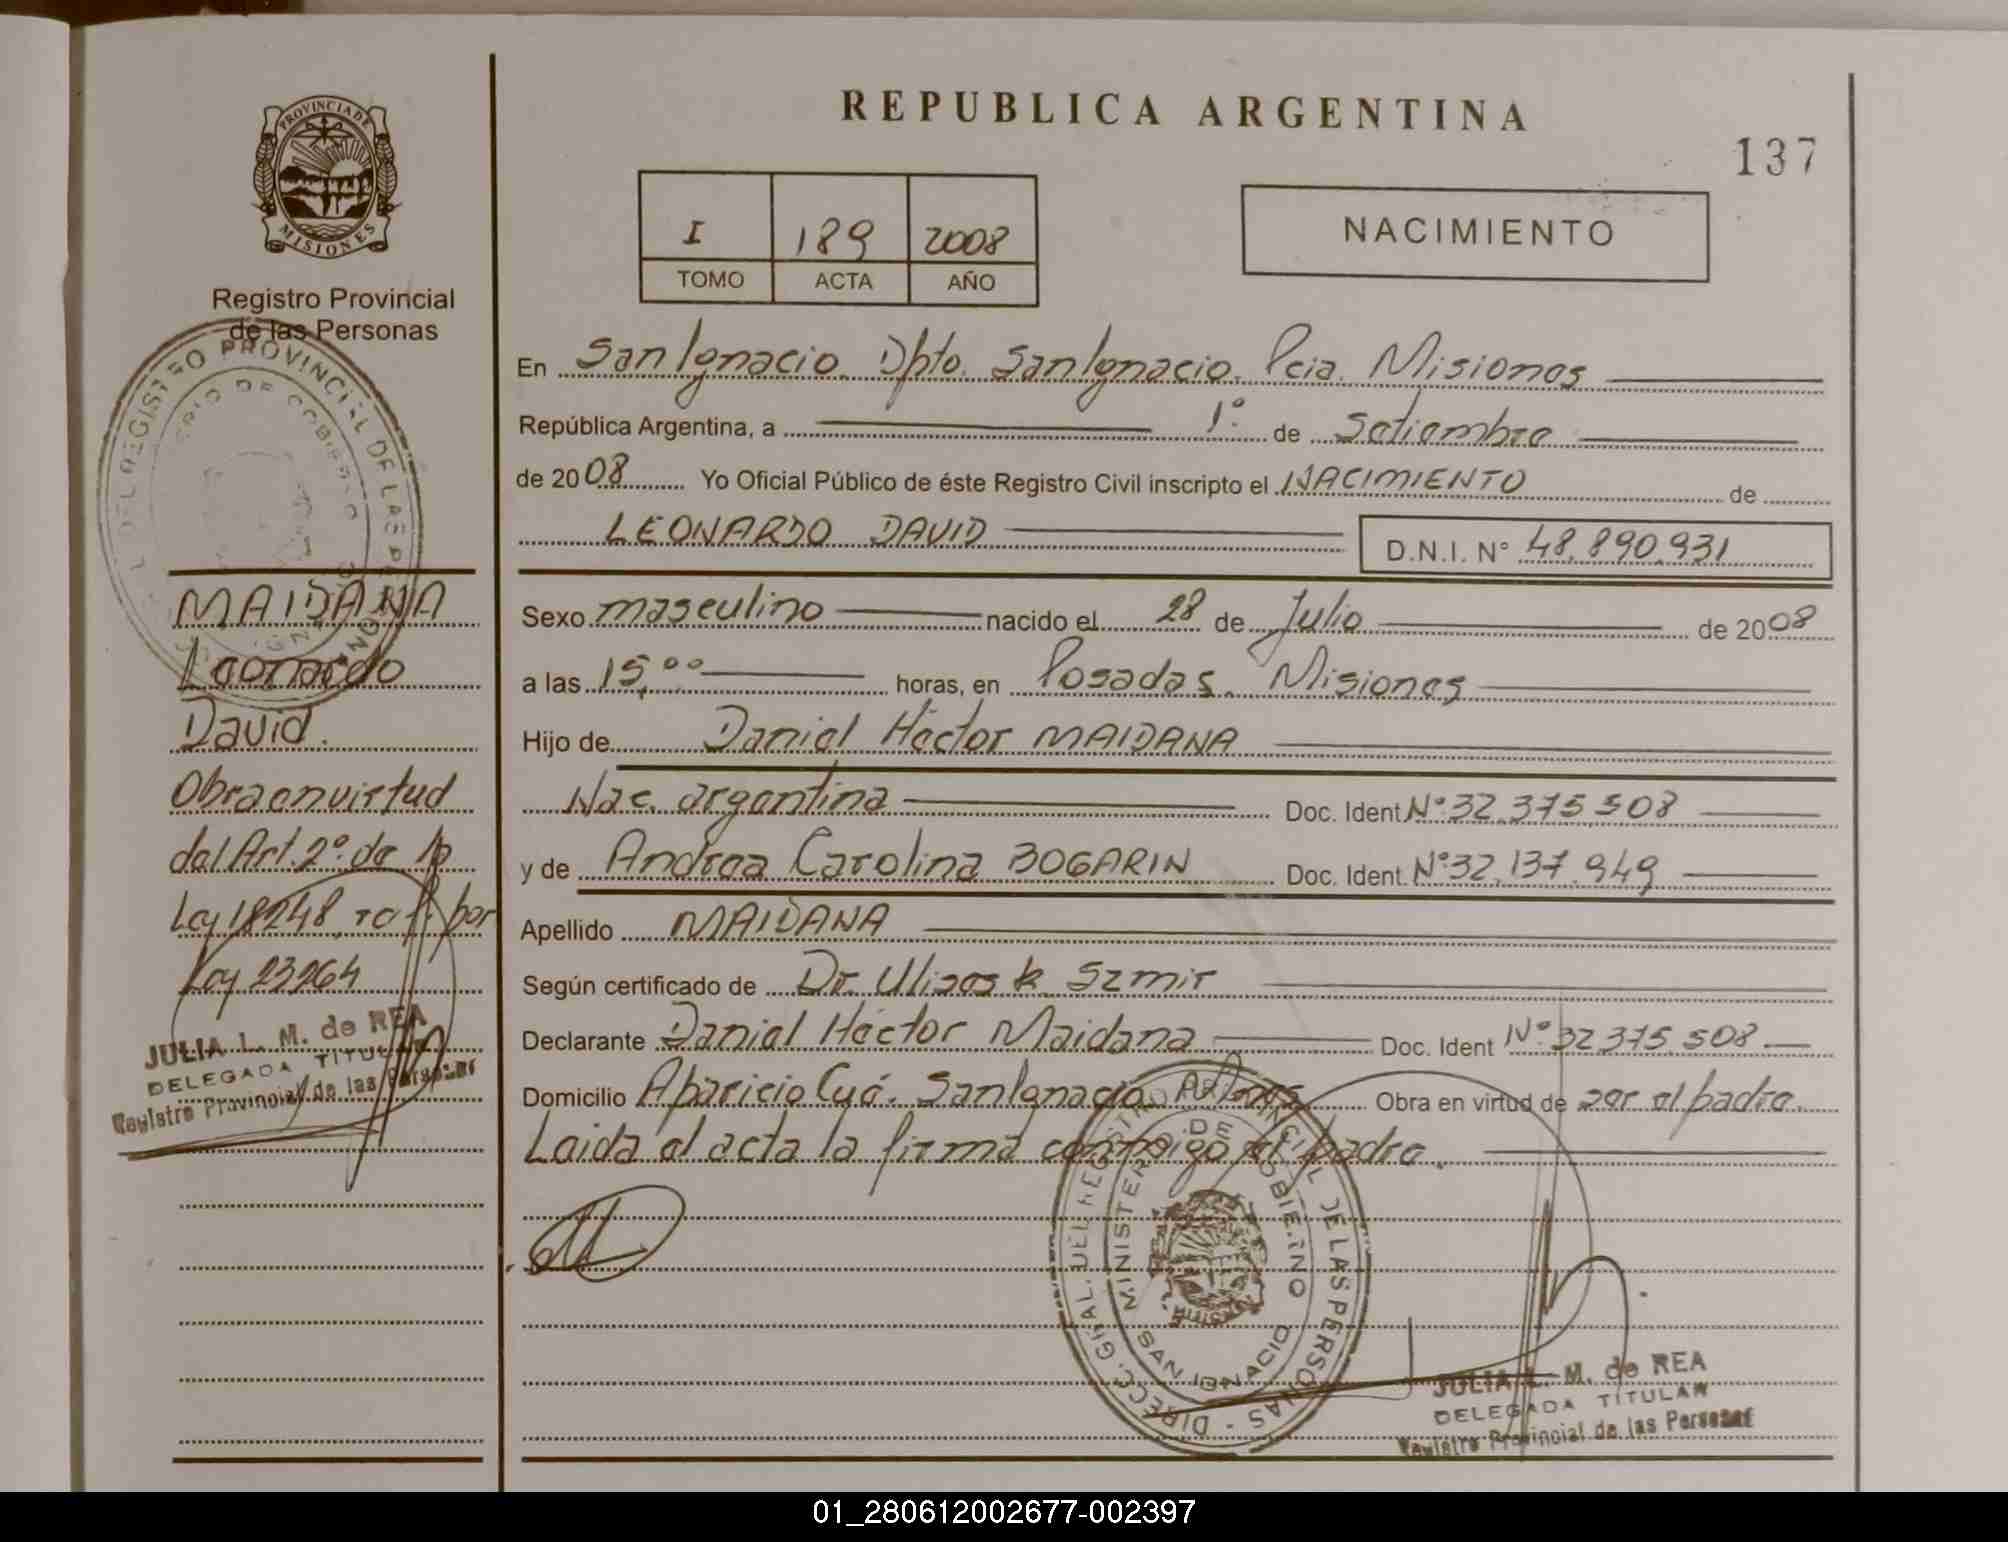 REPUBLICA ARGENTINA
137
PROVINCIA DE
MISIONES
Registro Provincial
de las Personas
I 189 2008
TOMO ACTA AÑO
NACIMIENTO
En San Ignacio. Dpto. San Ignacio. Pcia. Misiones
República Argentina, a 1º de Setiembre
de 2008 Yo Oficial Público de éste Registro Civil inscripto el NACIMIENTO de
LEONARDO DAVID D.N.I. Nº 48.890.931
Sexo masculino nacido el 28 de Julio de 2008
a las 15,00 horas, en Posadas. Misiones
Hijo de Daniel Héctor MAIDANA
Nac. argentina Doc. Ident Nº 32.375.508
y de Andrea Carolina BOGARIN Doc. Ident. Nº 32.137.949
Apellido MAIDANA
Según certificado de Dr. Ulises k. Szmir
Declarante Daniel Héctor Maidana Doc. Ident Nº 32.375.508
Domicilio Aparicio Cué. San Ignacio Obra en virtud de ser el padre.
Leida el acta la firma conmigo el padre.
MAIDANA
Leonardo
David.
Obra en virtud
del Art. 2º. de la
Ley 18248, por
Ley 23264
JULIA L. M. de REA
DELEGADA TITULAR
Registro Provincial de las Personas
DIRECC. GRAL. DEL REGISTRO PROVINCIAL DE LAS PERSONAS
MINISTERIO DE GOBIERNO
SAN IGNACIO
JULIA L. M. de REA
DELEGADA TITULAR
Registro Provincial de las Personas
01_280612002677-002397